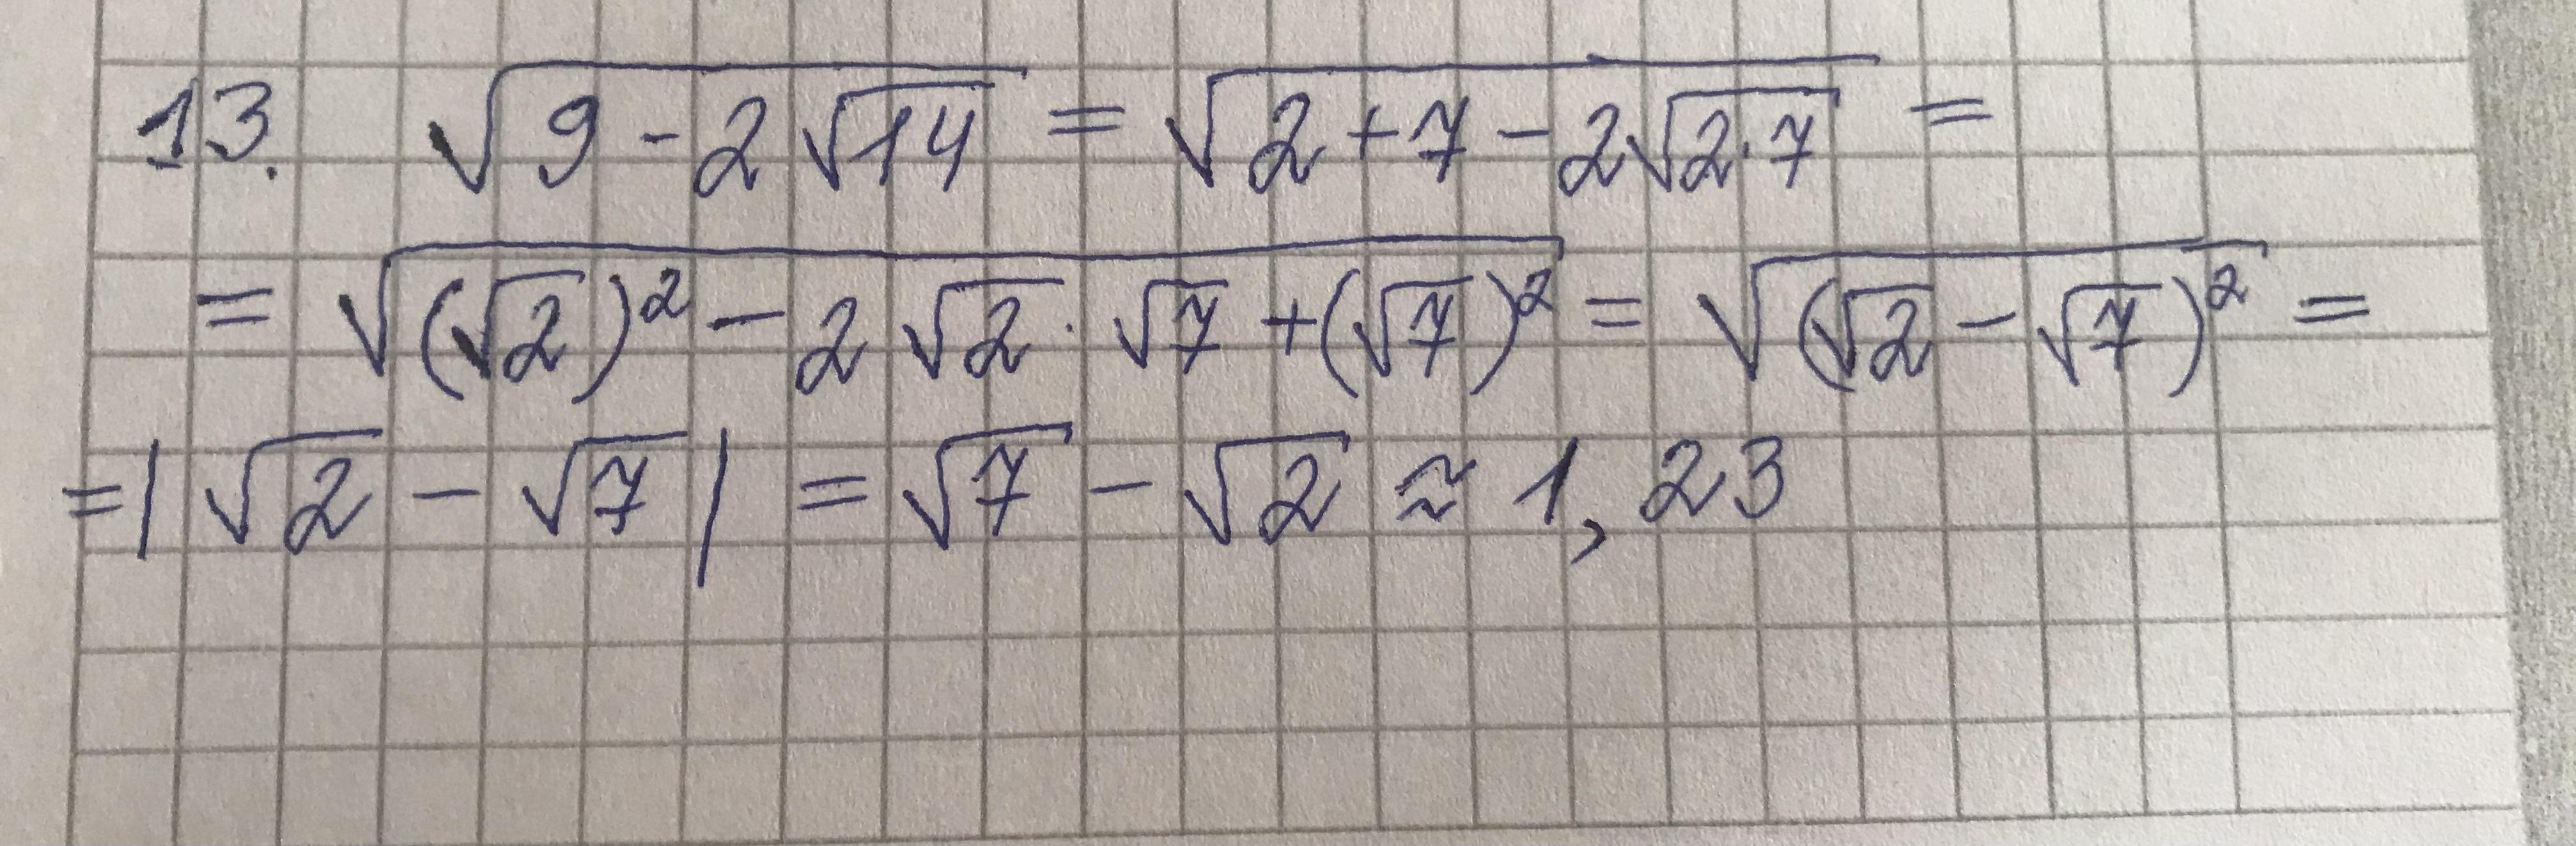 13. √(9 - 2√14) = √(2 + 7 - 2√(2·7)) =
= √((√2)² - 2√2 · √7 + (√7)²) = √((√2 - √7)²) =
= |√2 - √7| = √7 - √2 ≈ 1,23